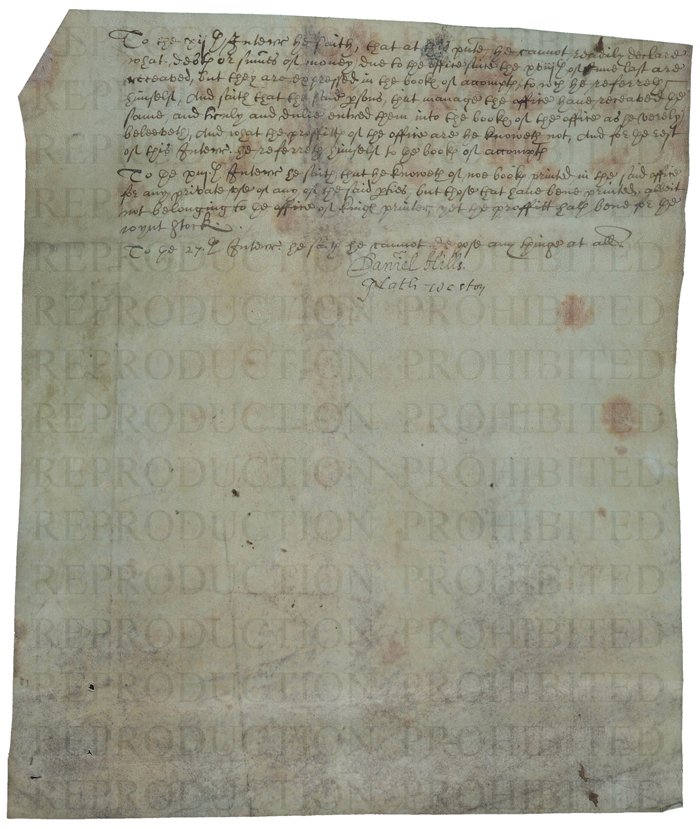 To the xijth Interr he saith, that at this pnte he cannot readily declare
what debts or sumes of money due to the office since the xviijth of June last are
receaved, but they are expressed in the books of accompts, to wch he referreth
himself, And saith that the said psons, that manage the office have receaved the
same and truly and dulie entred them into the books of the office as he verely
beleeveth, And what the proffitts of the office are he knoweth not, And for the rest
of this Interr. he referreth himself to the books of accompts
To the xiijth Interr he saith that he knoweth of noe books printed in the said office
for any private use of any of the said pties, but those that have bene printed, albeit
not belonging to the office of kings printer, yet the proffitt hath bene for the
ioynt stock.
To the 27th Interr he saith he cannot depose any thinge at all.
Daniel Hills
REPRODUCTION PROHIBITED
REPRODUCTION PROHIBITED
REPRODUCTION PROHIBITED
REPRODUCTION PROHIBITED
REPRODUCTION PROHIBITED
REPRODUCTION PROHIBITED
REPRODUCTION PROHIBITED
REPRODUCTION PROHIBITED
REPRODUCTION PROHIBITED